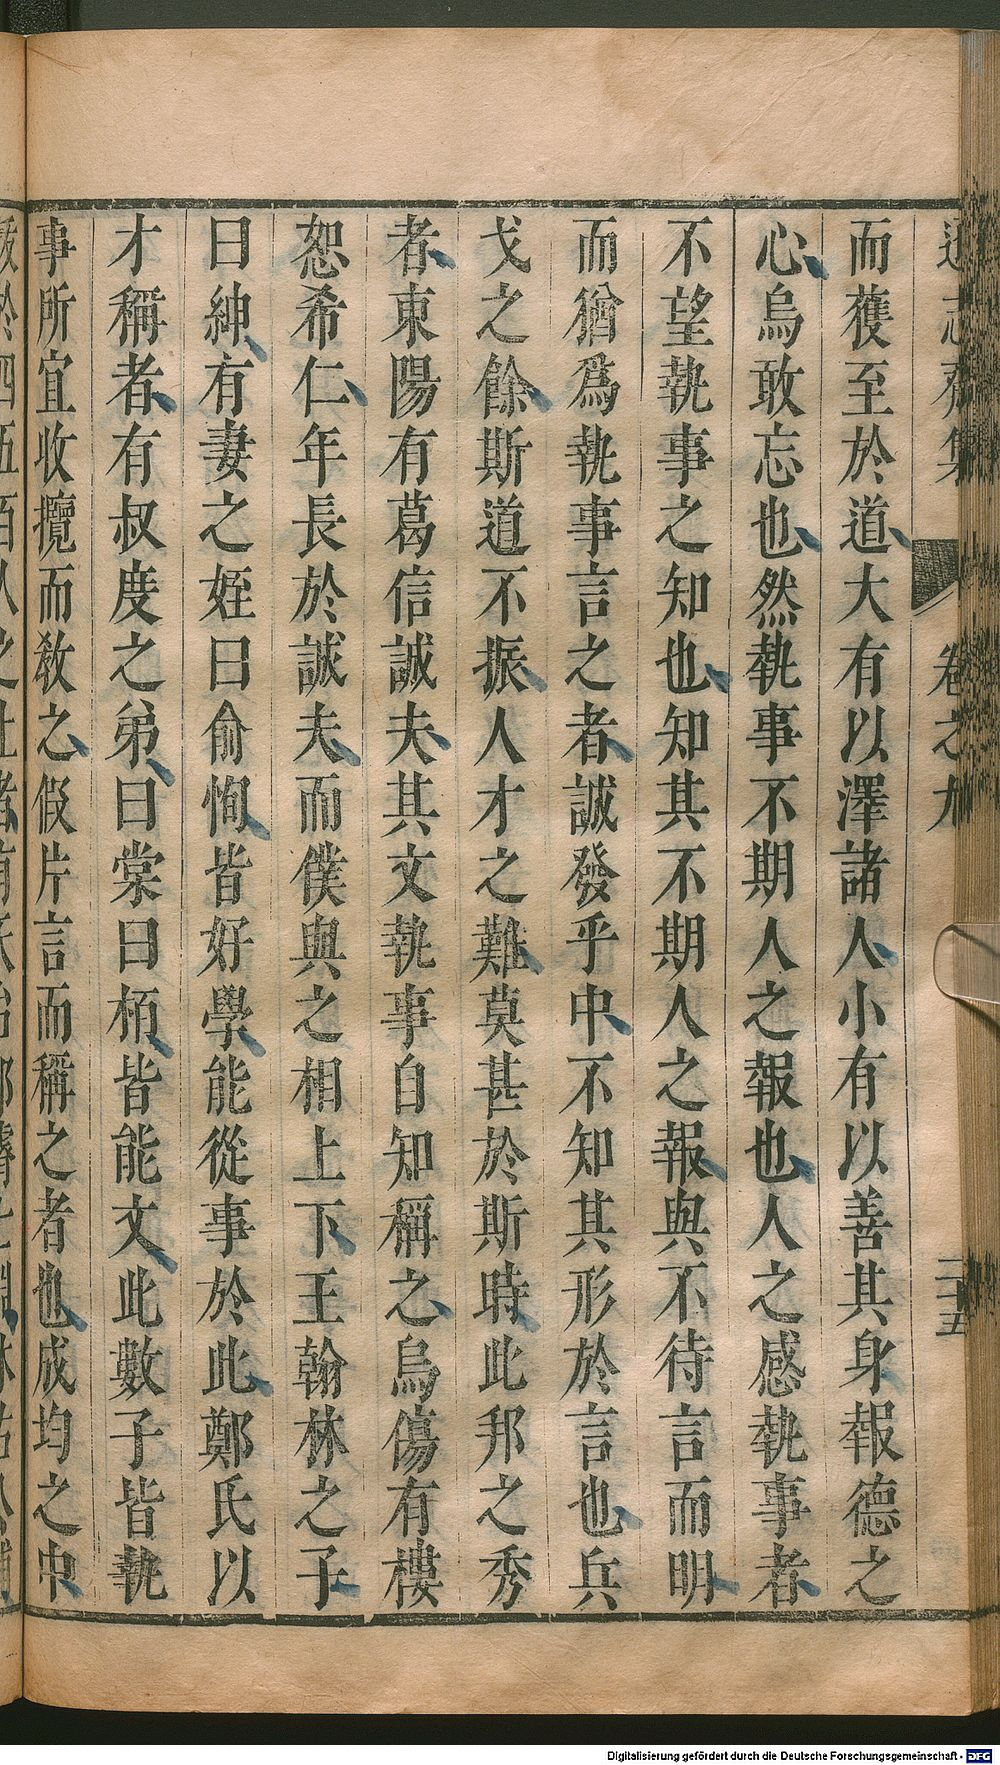 遜志齋集 卷之九 二十五
而獲至於道大有以澤諸人小有以善其身報德之
心烏敢忘也然執事不期人之報也人之感執事者
不望執事之知也知其不期人之報與不待言而明
而猶爲執事言之者誠發乎中不知其形於言也兵
戈之餘斯道不振人才之難莫甚於斯時此邦之秀
者東陽有葛信誠夫其文執事自知稱之烏傷有樓
恕希仁年長於誠夫而僕與之相上下王翰林之子
曰紳有妻之姪曰俞恂皆好學能從事於此鄭氏以
才稱者有叔度之弟曰棠曰栢皆能文此數子皆執
事所宜收攬而敎之假片言而稱之者也成均之中
Digitalisierung gefördert durch die Deutsche Forschungsgemeinschaft - DFG